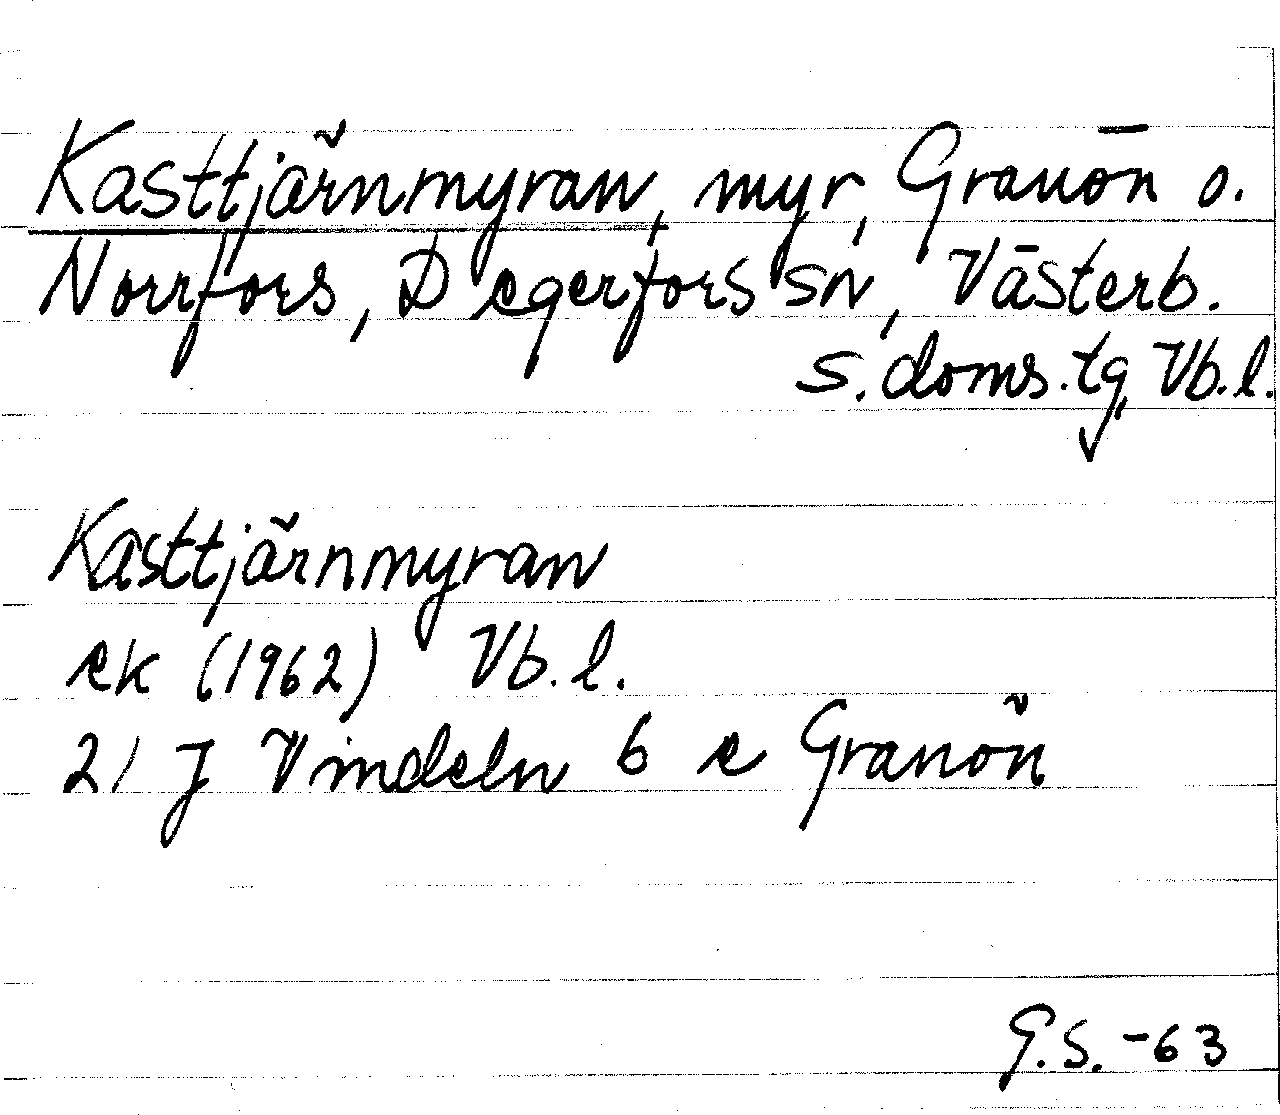 Kasttjärnmyran, myr, Granön o.
Norrfors, Degerfors sn, Västerb.
s. doms. tg, Vb. l.
Kasttjärnmyran
ek (1962) Vb. l.
21 J Vindeln 6 e Granön
G.S. -63